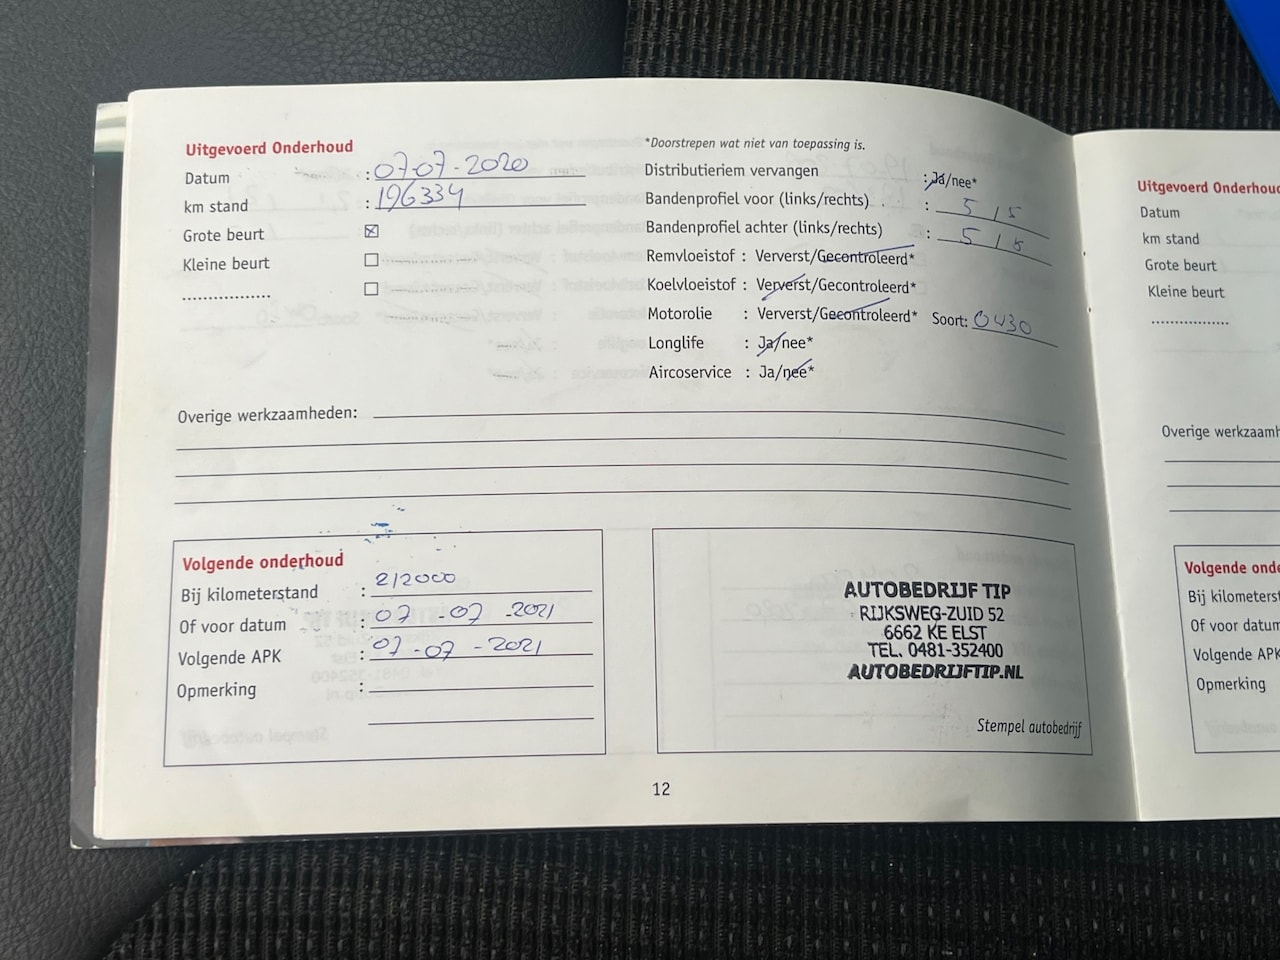 Uitgevoerd Onderhoud
Datum : 07-07-2020
km stand : 196334
Grote beurt ☒
Kleine beurt ☐
................. ☐
*Doorstrepen wat niet van toepassing is.
Distributieriem vervangen : Ja/nee*
Bandenprofiel voor (links/rechts) : 5 / 5
Bandenprofiel achter (links/rechts) : 5 / 5
Remvloeistof : Ververst/Gecontroleerd*
Koelvloeistof : Ververst/Gecontroleerd*
Motorolie : Ververst/Gecontroleerd* Soort: 0W30
Longlife : Ja/nee*
Aircoservice : Ja/nee*
Overige werkzaamheden:
Volgende onderhoud
Bij kilometerstand : 212000
Of voor datum : 07-07-2021
Volgende APK : 07-07-2021
Opmerking :
AUTOBEDRIJF TIP
RIJKSWEG-ZUID 52
6662 KE ELST
TEL. 0481-352400
AUTOBEDRIJFTIP.NL
Stempel autobedrijf
12
Uitgevoerd Onderhoud
Datum
km stand
Grote beurt
Kleine beurt
.................
Overige werkzaamh
Volgende onde
Bij kilometerst
Of voor datum
Volgende APK
Opmerking